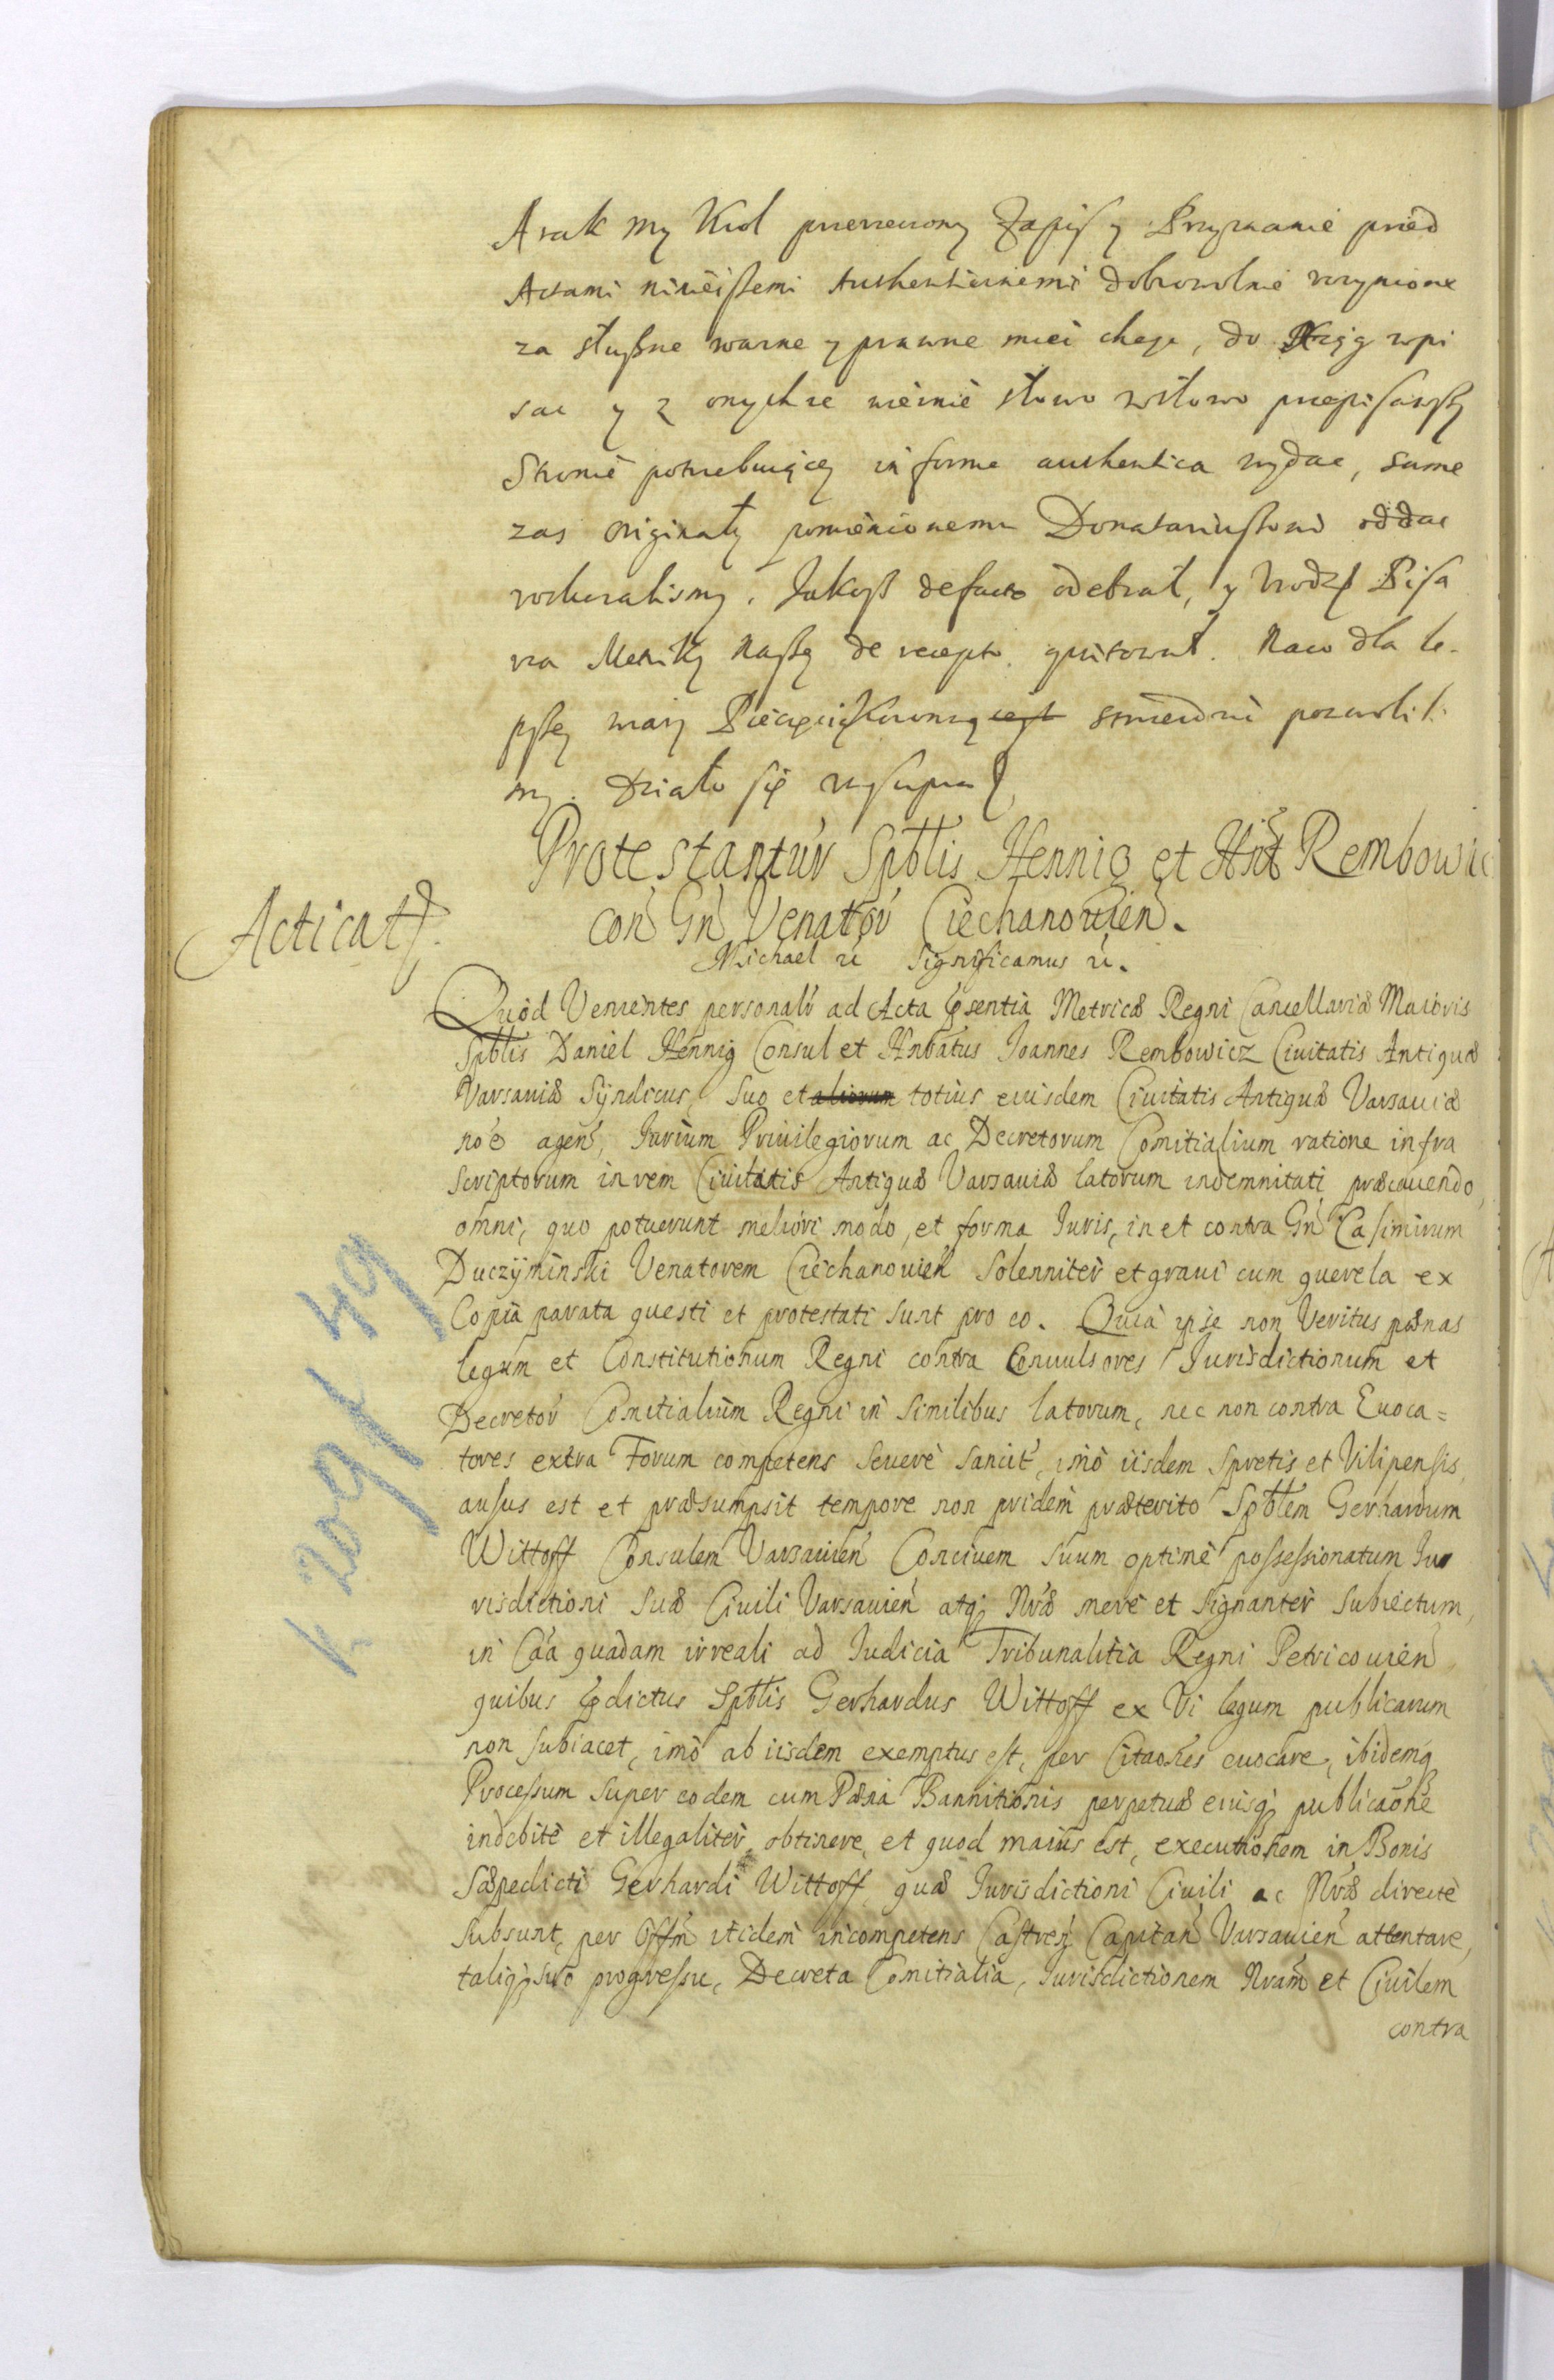 A tak my Krol przerzeczony Zapis y Przyznanie przed
Actami ninieiszemi Authenticznemi dobrowolnie uczynione
za słuszne wazne y prawne miec chcąc, do Xiąg wpi
sac y z onychze wiernie słowo wsłowo przepisawszy
Stronie potrzebuiącey in forma authentica wydac, same
zas originały pomienionemu Donatariuszowi oddac
rozkazalismy. Jakosz defacto odebrał, y Urodzo Pisa
rza Metriky naszey de recepto quitował. Na co dla le-
pszey wiary Pieczęc Koronną scisnąc pozwolili
my. Działo się ut supra
Protestantur Spblis Hennig et Hnt Rembowic
con Gn Venator Ciechanowien.
Acticat.
Michael etc Significamus etc.
Quod Venientes personalr ad Acta psentia Metricæ Regni Cancellariæ Maioris
Spblis Daniel Hennig Consul et Hnbatus Joannes Rembowicz Ciuitatis Antiquæ
Varsauiæ Syndicus, suo et aliorum totius eiusdem Ciuitatis Antiquæ Varsauiæ
noe agen, Iurium Priuilegiorum ac Decretorum Comitialium ratione infra
scriptorum in rem Ciuitatis Antiquæ Varsauiæ latorum indemnitati præcauendo,
omni, quo potuerunt meliori modo, et forma Iuris, in et contra Gn Casimirum
Duczÿminski Venatorem Ciechanouien Solenniter et graui cum querela ex
Copia parata questi et protestati sunt pro eo. Quia ipse non Veritus pænas
legum et Constitutionum Regni contra Conuulsores Iurisdictionum et
Decretor Comitialium Regni in similibus latorum, nec non contra Euoca=
tores extra Forum competens seuere sancit, imo iisdem Spretis et Vilipensis,
ausus est et præsumpsit tempore non pridem præterito Spblem Gerhardum
Wittoff Consulem Varsauien Conciuem suum optime possessionatum Iu
risdictioni suæ Ciuili Varsauien atq Nræ mere et signanter subiectum,
in Caa quadam irreali ad Iudicia Tribunalitia Regni Petricouien
quibus pdictus Spblis Gerhardus Wittoff ex Vi legum publicarum
non subiacet, imo ab iisdem exemptus est, per Citaones euocare, ibidemq
Processum super eodem cum Pæna Bannitionis perpetuæ eiusq publicaone
indebite et illegaliter obtinere, et quod maius est, executionem in Bonis
Sæpedicti Gerhardi Wittoff quæ Iurisdictioni Ciuili ac Nræ directe
subsunt, per Offm itidem incompetens Castren Capitan Varsauien attentare,
taliq suo progressu, Decreta Comitialia, Iurisdictionem Nram et Ciuilem
contra
k 209 f 49